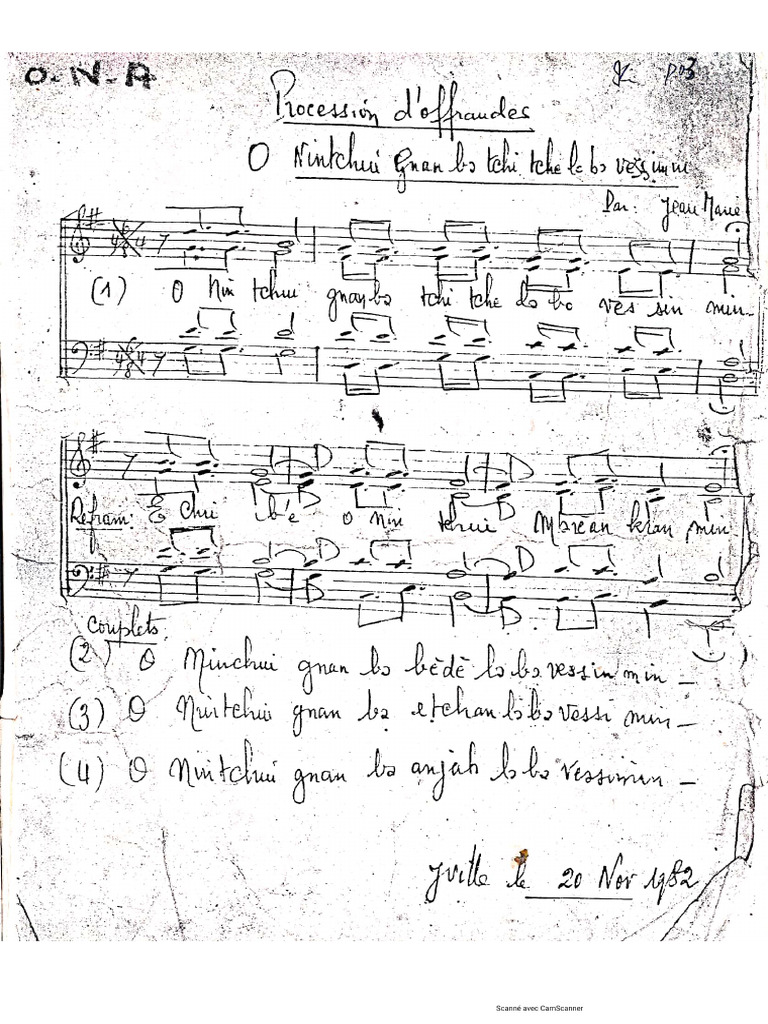 O-N-A
Procession d'offrandes
O Nintchui gnan bo tchi tche lo bo vessimin
Par: Jean Marie
(1) O Nin tchui gnan bo tchi tche lo bo ves sin min-
Refrain: E Chui bé o nin tchui kran min
Couplets
(2) O Ninchui gnan bo bèdè lo bo vessin min -
(3) O Nintchui gnan bo etchan lo bo vessi min -
(4) O Nintchui gnan bo anjah lo bo vessimin -
le 20 Nov 1982
Scanné avec CamScanner